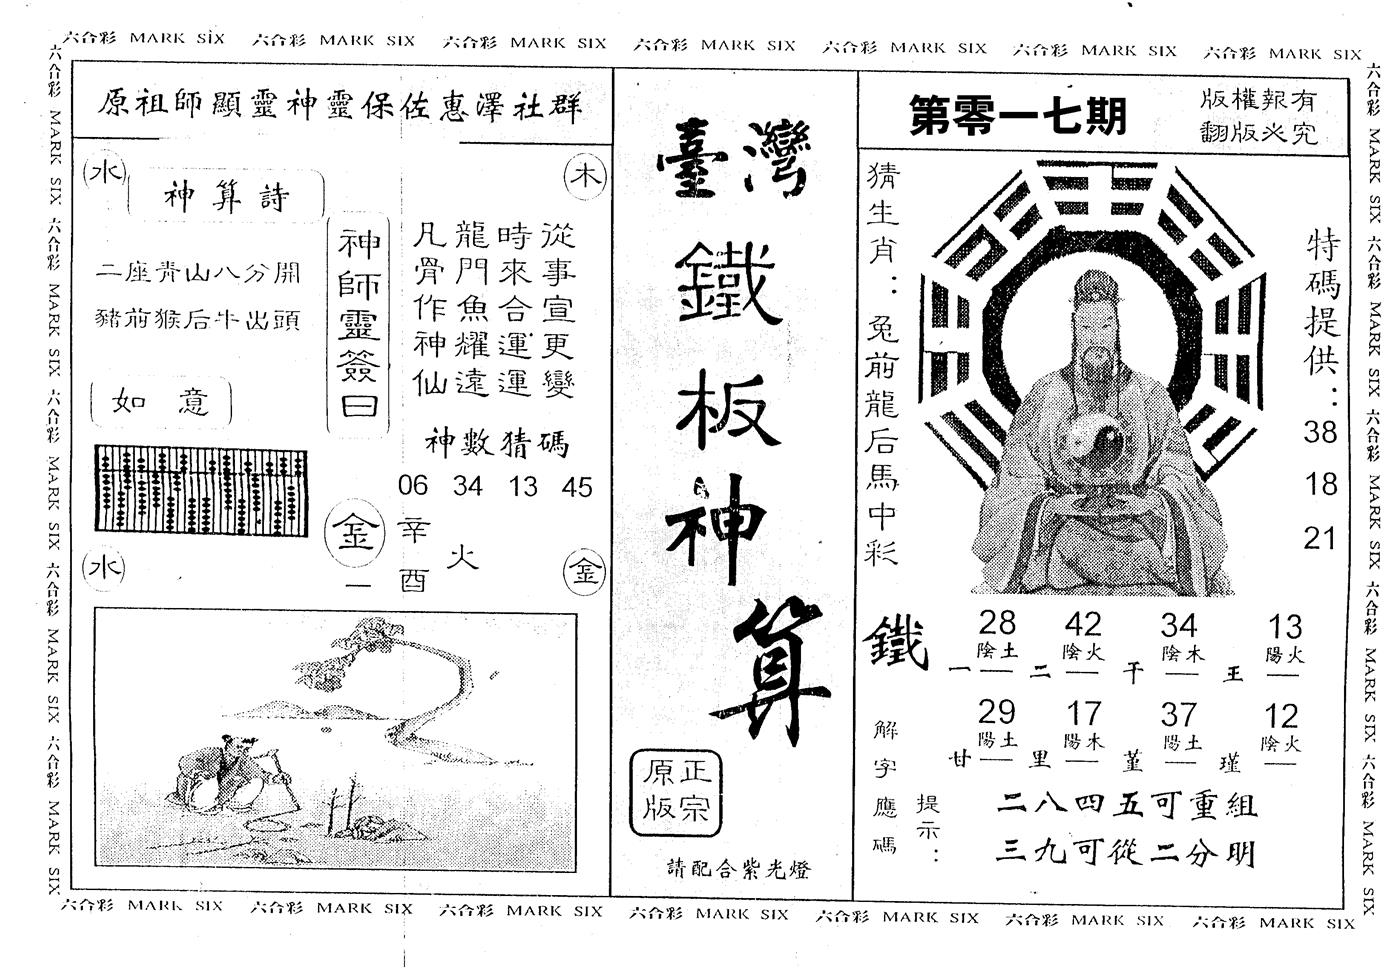 六合彩 MARK SIX 六合彩 MARK SIX 六合彩 MARK SIX 六合彩 MARK SIX 六合彩 MARK SIX 六合彩 MARK SIX 六合彩 MARK SIX
六合彩 MARK SIX 六合彩 MARK SIX 六合彩 MARK SIX 六合彩 MARK SIX 六合彩 MARK SIX
原祖師顯靈神靈保佐惠澤社群
水
神算詩
木
二座青山八分開
豬前猴后牛出頭
如意
神師靈簽曰
從事宣更變
時來合運運
龍門魚耀遠
凡骨作神仙
神數猜碼
06 34 13 45
水
金
一
辛酉
火
金
臺灣
鐵板神算
正宗
原版
請配合紫光燈
第零一七期
版權報有
翻版必究
猜生肖：兔前龍后馬中彩
特碼提供：
38
18
21
鐵
28 42 34 13
陰土 陰火 陰木 陽火
一 二 干 王
29 17 37 12
陽土 陽木 陽土 陰火
甘 里 堇 瑾
解字應碼
提示：
二八四五可重組
三九可從二分明
六合彩 MARK SIX 六合彩 MARK SIX 六合彩 MARK SIX 六合彩 MARK SIX 六合彩 MARK SIX
六合彩 MARK SIX 六合彩 MARK SIX 六合彩 MARK SIX 六合彩 MARK SIX 六合彩 MARK SIX 六合彩 MARK SIX 六合彩 MARK SIX